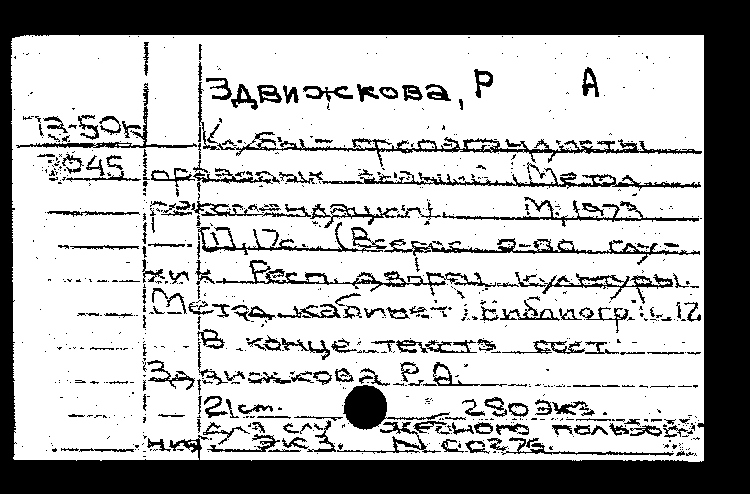 Здвижкова, Р А
73-50к Клубы – пропагандисты
7945 правовых знаний (Метод
рекомендации). М, 1973
17с. (Всерос о-во глу-
хих. Респ. дворец культуры.
Метод кабинет) Библиогр: с. 17
В конце текста сост.
Здвижкова Р.А.
21 cm. 280 экз.
Для служебного пользова-
ния экз. N 00276.